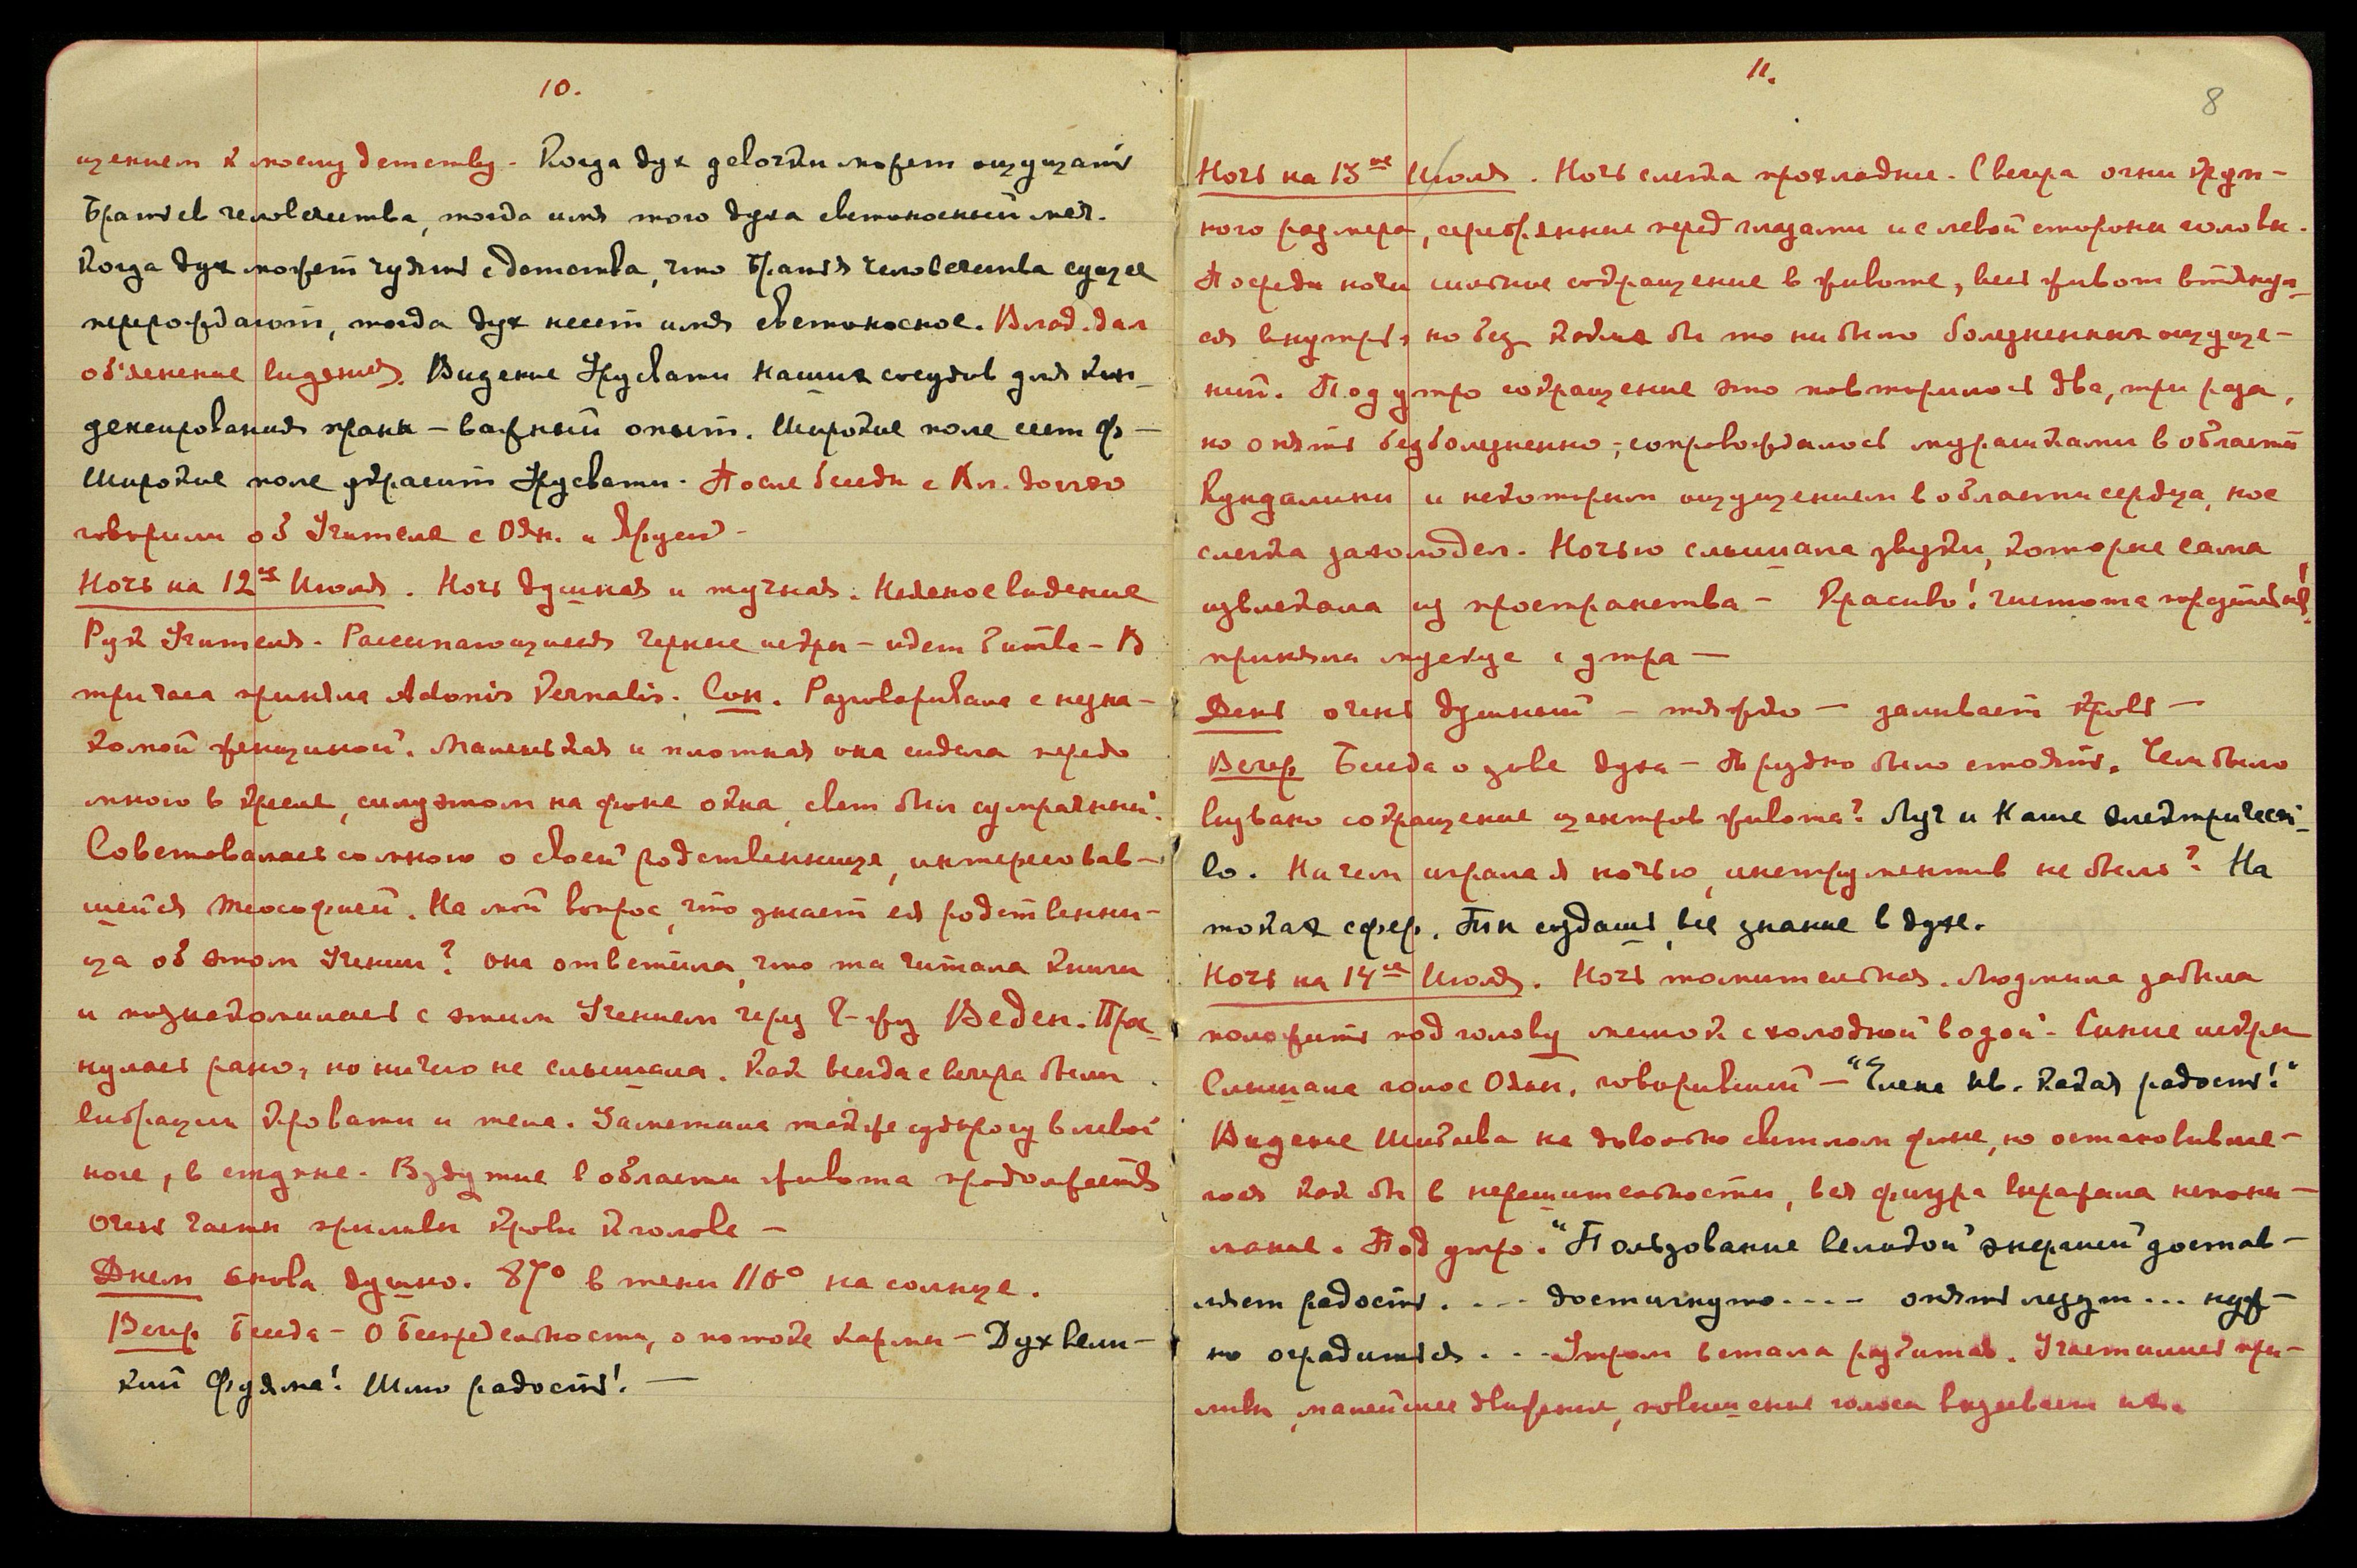 10.
щением к моему детству. Когда дух девочки может ощущать
Братьев человечества, тогда имя того духа светоносный меч.
Когда дух может чуять с детства, что Братья человечества сущее
перерождают, тогда дух несет имя светоносное. Влад. дал
об'яснение видения. Видение Урусвати Наших сосудов для кон-
денсирования праны – важный опыт. Широкие поле сет
Широкие поле украсит Урусвати. После беседы с Ал. долго
говорили об Учителе с Оян. и
Ночь на 12ое Июля. Ночь душная и тучная. Неясное видение
Рук Учителя. Рассыпающиеся черные искры – идет битва – В
три часа приняла Adonis Vernalis. Сон. Разговаривала с незна-
комой женщиной. Маленькая и плотная она сидела передо
мною в кресле, силуэтом на фоне окна, свет был сумрачный.
Советовалась со мною о своей родственнице, интересовав-
шейся теософией. На мой вопрос, что знает ея родственни-
ца об этом Учении? она ответила, что та читала книги
и познакомилась с этим Учением через Веден. Прос-
нулась рано, но ничего не слышала. Как всегда с вечера были
вибрации кровати и тела. Заметила также судорогу в левой
ноге, в ступне. Вздутие в области живота продолжается
Очень часты приливы крови к голове –
Днем снова душно. 87° в тени 116° на солнце.
Вечер Беседа – О Беспредельности, о потоке кармы – Дух вели-
кий Фуяма! Шлю радость! –
11.
8
Ночь на 13ое Июля. Ночь слегка прохладнее. С вечера огни круп-
ного размера, серебряные перед глазами и с левой стороны головы.
Посреди ночи сильное сокращение в животе, весь живот втянул-
ся внутрь, но без каких бы то ни было болезненных ощуще-
ний. Под утро сокращение это повторилось два, три раза,
но опять безболезненно; сопровождалось мурашками в области
Кундалини и некоторым ощущением в области сердца, кое
слегка захолодел. Ночью слышала звуки, которые сама
извлекала из пространства – Красиво! чистота
приняла мускус с утра –
День очень душный – тяжко – заливает кровь –
Вечер Беседа о зове духа – Трудно было стоять. Чем было
вызвано сокращение центров живота? Луч и Наше электричест-
во. На чем играла я ночью, инструментов не было? На
токах сфер. Так создашь все знание в духе.
Ночь на 14ое Июля. Ночь томительная. Людмила забыла
положить под голову мешок с холодной водой. Синие искры
Слышала голос Оян. говоривший – "Елена Ив. какая радость!"
Видение Шибаева на довольно светлом фоне, но остановивше-
гося как бы в нерешительности, вся фигура выражала непони-
мание. Под утро. "Пользование великой энергией достав-
ляет радость. ... достигнуто .... опять лезут ... нуж-
но оградиться ... Утром встала разбитая. Участились при-
ливы, малейшее движение, повышение голоса вызывает их